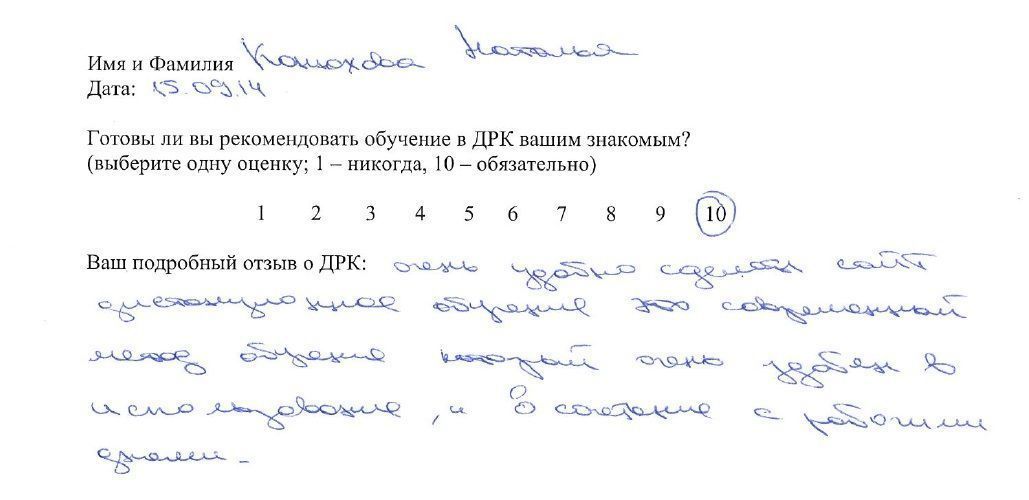 Имя и Фамилия Конюхова Наталья
Дата: 15.09.14
Готовы ли вы рекомендовать обучение в ДРК вашим знакомым?
(выберите одну оценку; 1 – никогда, 10 – обязательно)
1 2 3 4 5 6 7 8 9 10
Ваш подробный отзыв о ДРК: очень удобно сделан сайт
дистанционное обучение это современный
метод обучение который очень удобен в
использование, и в сочетание с рабочими
днями.